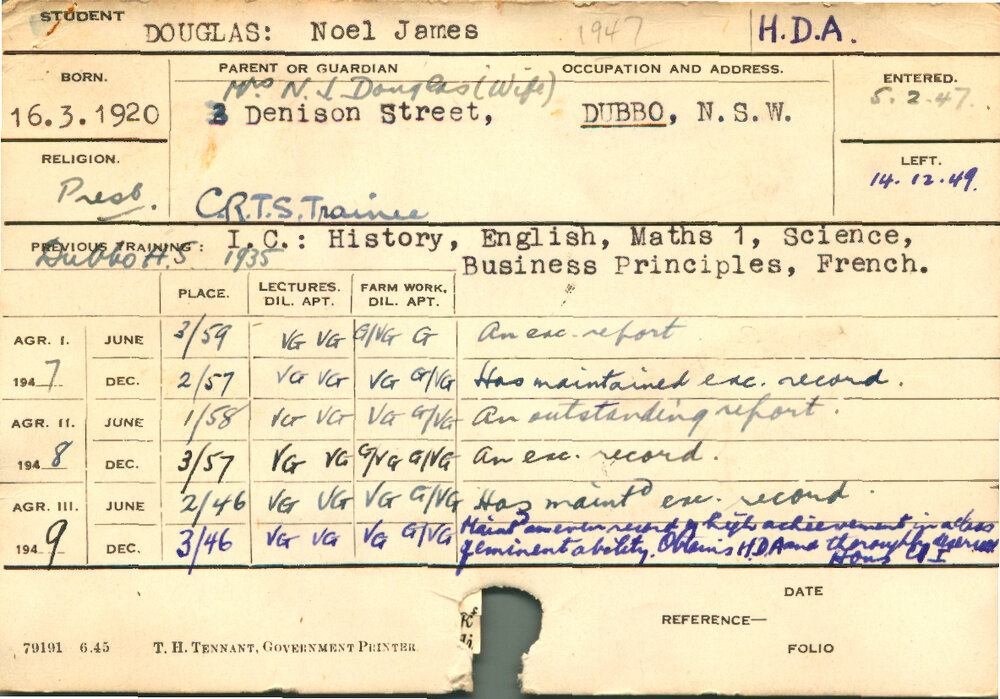 STUDENT
DOUGLAS: Noel James 1947 H.D.A.
BORN. PARENT OR GUARDIAN OCCUPATION AND ADDRESS. ENTERED.
Mrs N. J. Douglas (Wife) 5.2.47.
16.3.1920 3 Denison Street, DUBBO, N.S.W.
RELIGION. LEFT.
Presb. 14.12.49.
C.R.T.S. Trainee
PREVIOUS TRAINING: I.C.: History, English, Maths 1, Science,
Dubbo H.S 1935 Business Principles, French.
PLACE. LECTURES. FARM WORK,
DIL. APT. DIL. APT.
AGR. I. JUNE 3/59 VG VG G/VG G An exc. report
1947 DEC. 2/57 VG VG VG G/VG Has maintained exc. record.
AGR. II. JUNE 1/58 VG VG VG G/VG An outstanding report.
1948 DEC. 3/57 VG VG G/VG G/VG An exc. record.
AGR. III. JUNE 2/46 VG VG VG G/VG Has maintd exc. record.
1949 DEC. 3/46 VG VG VG G/VG Maintd an even record of high achievement in a class
of eminent ability. Obtains H.D.A and thoroughly deserves
Hons I
DATE
REFERENCE—
79191 6.45 T. H. TENNANT, GOVERNMENT PRINTER. FOLIO